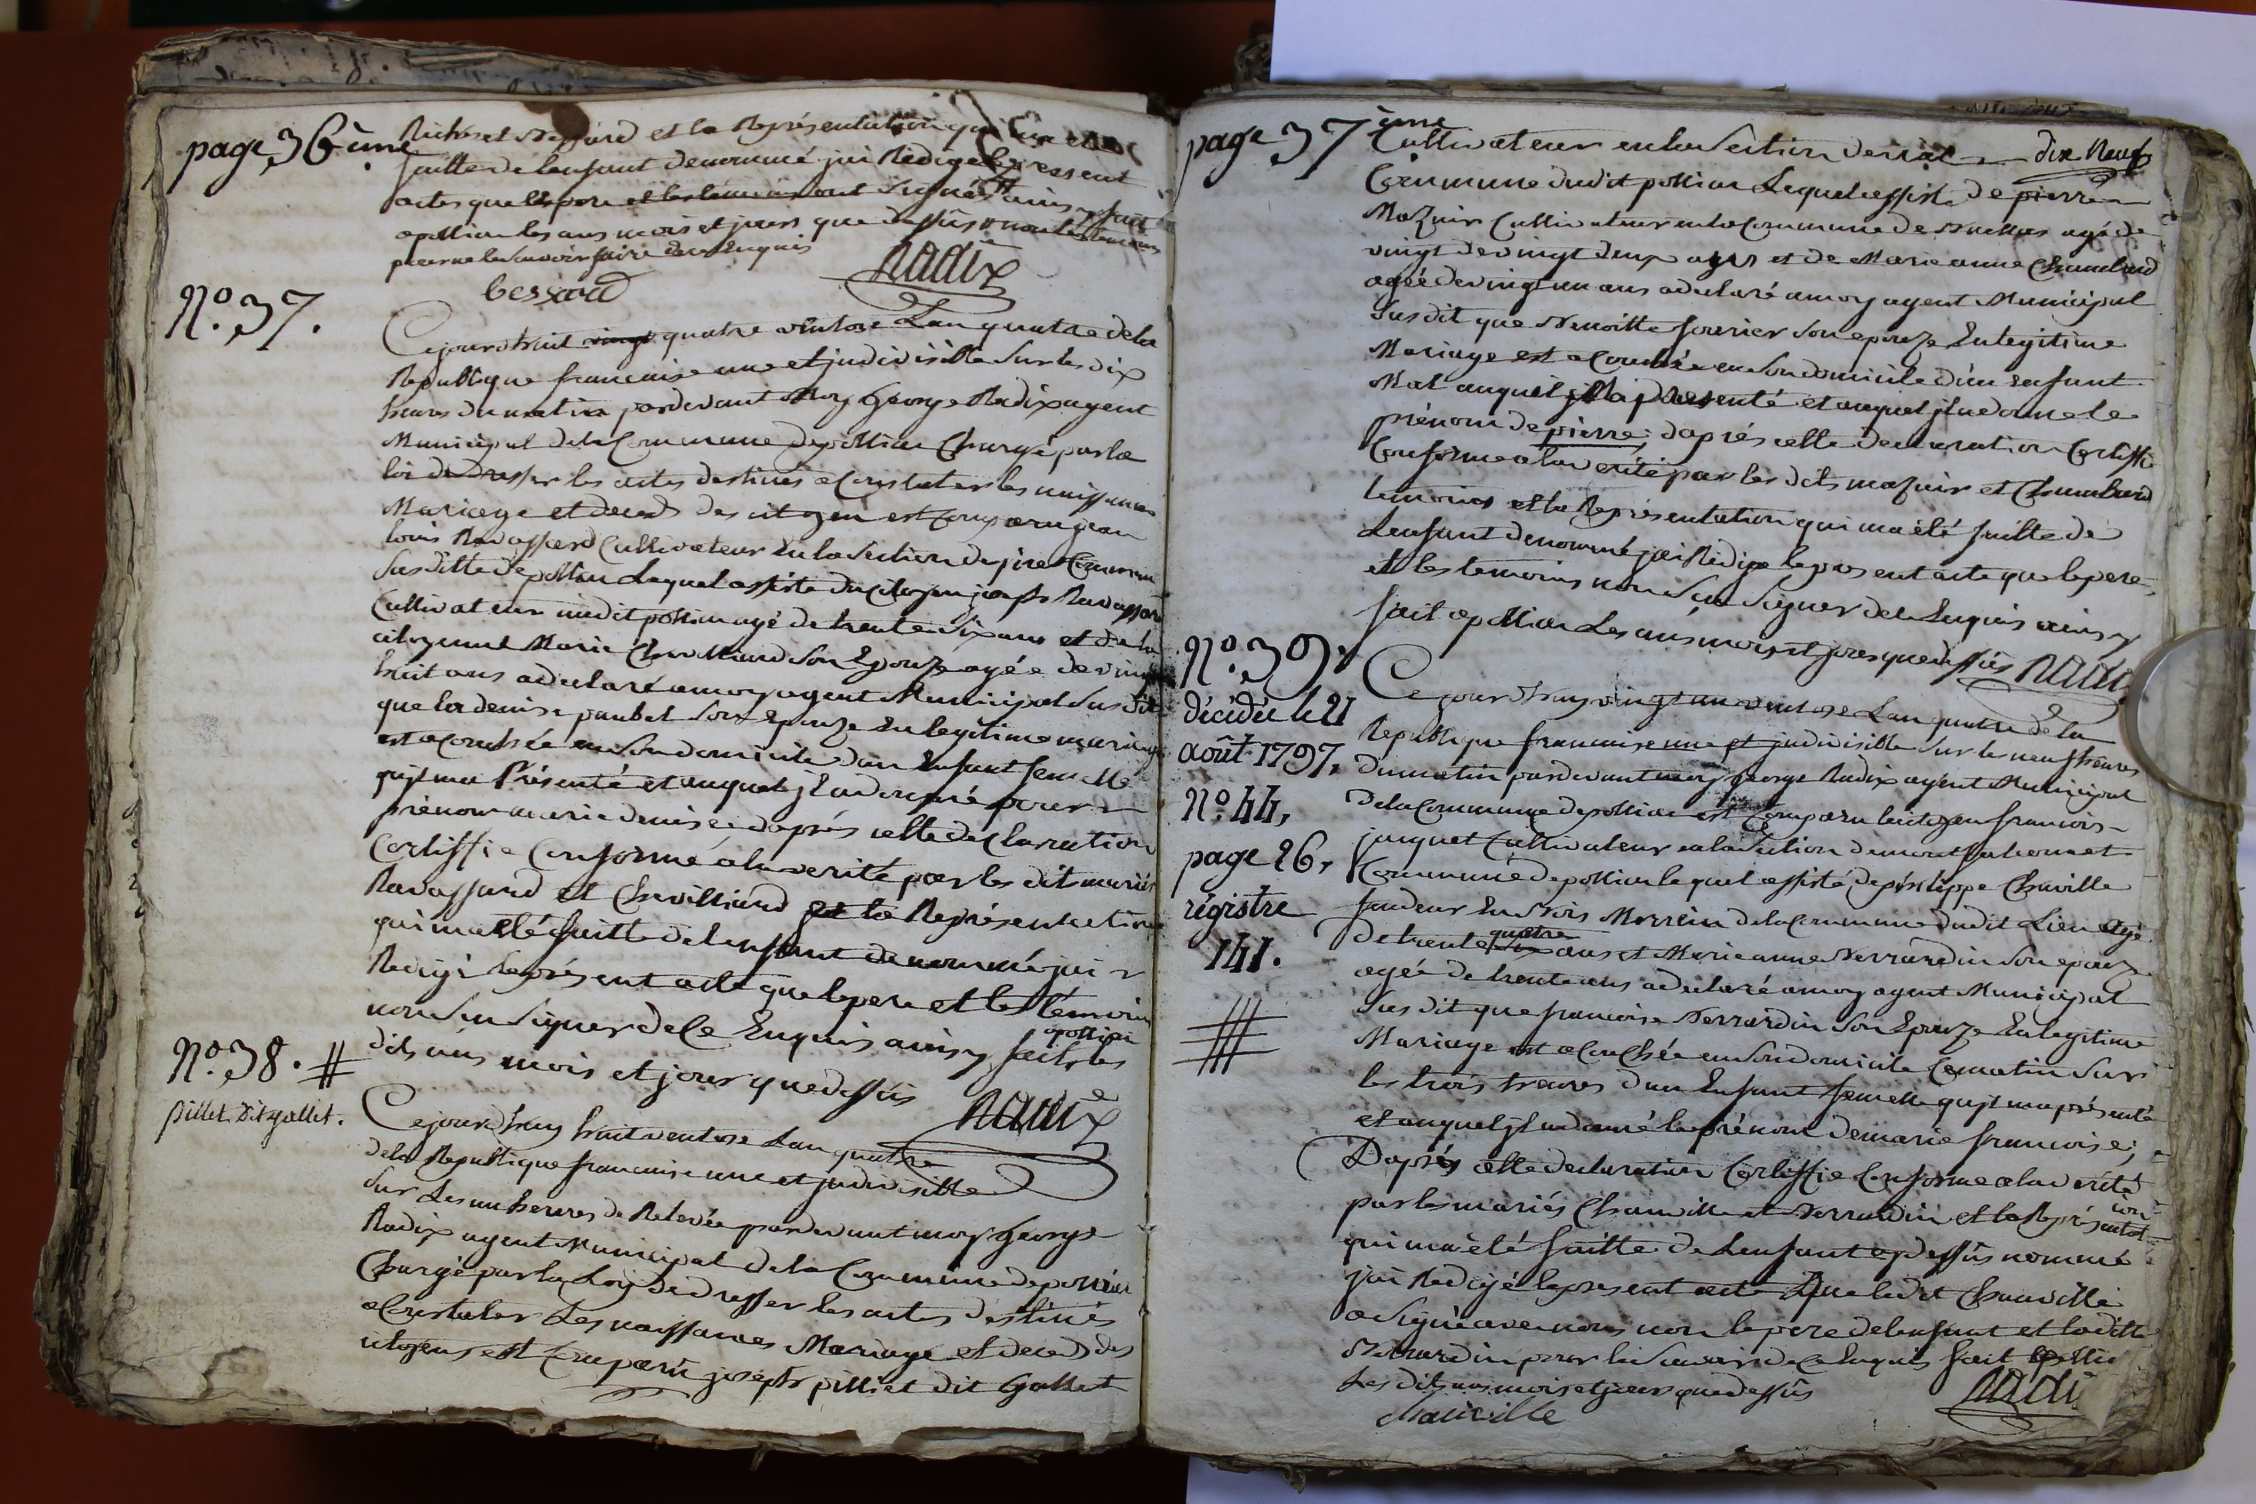 page 36 ème
Richer et
et la Représentation qui
faitte de lenfant denommé jai Redigé le present
actes que le pere et les temoins ont signés ainsy fait
a pollian les ans mois et jours que dessus
pour ne le savoir faire de ce Enquis
bessard
Radix
N.º 37.
Cejourdhuit quatre ventose Lan quatre dela
Republique francaise une et jndivisible sur les dix
heures du matin pardevant Moy George Radix agent
Municipal dela Commune de pollian Chargé par la
loi de dresser les actes destinés a Constater les naissances
Mariage et deceds des citoyen est Comparu jean
louis Ravassard Cultivateur En la section de Commune
susditte de pollian Lequel assisté du Citoyen joseph Ravassard
Cultivateur audit pollian agé de trente six ans et de la
citoyenne Marie son Epouze agée de vingt
huit ans a declaré a moy agent Municipal susdit
que la denise paubel son Epouze En legitime mariage
est acouchée en son domicile dun Enfant femelle
qujl ma Présenté et auquel jl a donné pour
prénom marie denise daprés cette declaration
Certiffie Conforme a la verité par les dits mariés
Ravassard et Chevilliard et la Représentation
qui ma eté faitte de lenfant denommé jai
Redigé le présent acte que le pere et les témoins
non Su Signer de Ce Enquis ainsy fait
a pollian
les dits ans mois et jour que dessus
Radix
N.º 38. #
pillet Dit gallet.
Cejourdhuy huit ventose Lan quatre
dela Republique francaise une et jndivisible
sur Les un heures de Relevée pardevant moy George
Radix agent Municipal dela Commune de pollian
Chargé par la Loy de dresser les actes destinés
a Constater Les naissances Mariage et deceds des
citoyens est Comparu joseph pilliet dit Gallet
page 37 ème
dix Neuf
Cultivateur en la Section de
Commune dudit pollian Lequel assisté de pierre
Mazuir Cultivateur en la Commune de agé de
vingt de vingt deux ans et de Marie anne Chambard
agée de vingt un ans a declaré a moy agent Municipal
Susdit que Benoitte fournier son epouze En legitime
Mariage est acouchée en son domicile dun enfant
Mal auquel jl ma presenté et auquel jl a donné le
prénom de pierre; daprés cette declaration Certiffie
Conforme a la verité par les dits mazuir et Chambard
temoins et la Représentation qui ma été faitte de
Lenfant denommé jai Redigé le present acte que le pere
et les temoins non Su Signer de ce Enquis ainsy
fait a pollian Les ans mois et jour que dessus Radix
N.º 39.
décédée le 21
août 1797,
N.º 44,
page 26,
régistre
141.
Cejourdhuy vingt un ventose Lan quatre de la
Republique francaise une et jndivisible sur le neuf heures
du matin pardevant moy george Radix agent Municipal
dela Commune de pollian est Comparu le citoyen francois
jauquet Cultivateur en la Section de mont
Commune de pollian lequel assisté de philippe Chauville
fandeur En Bois Morrein dela Commune dudit Lieu agé
de trente quatre ans et Marie anne Berrardin son epouze
agée de trente ans a declaré a moy agent Municipal
Susdit que francoise Berrardin son Epouze En legitime
Mariage est acouchée en son domicile Ce matin sur
les trois heures dun Enfant femelle qujl ma présenté
et auquel jl a donné le prénom de marie francoise;
Daprés cette declaration Certiffie Conforme a la vérité
par les mariés Chauville et Berrardin et la Représentation
qui ma été faitte de Lenfant cy dessus nommé
jai Redigé le present acte Que ledit Chauville
a Signé avec nous non le pere de lenfant et laditte
Berrardin pour ne savoir de ce Enquis fait a pollian
Les dits ans mois et jour que dessus
Chauville
Radix